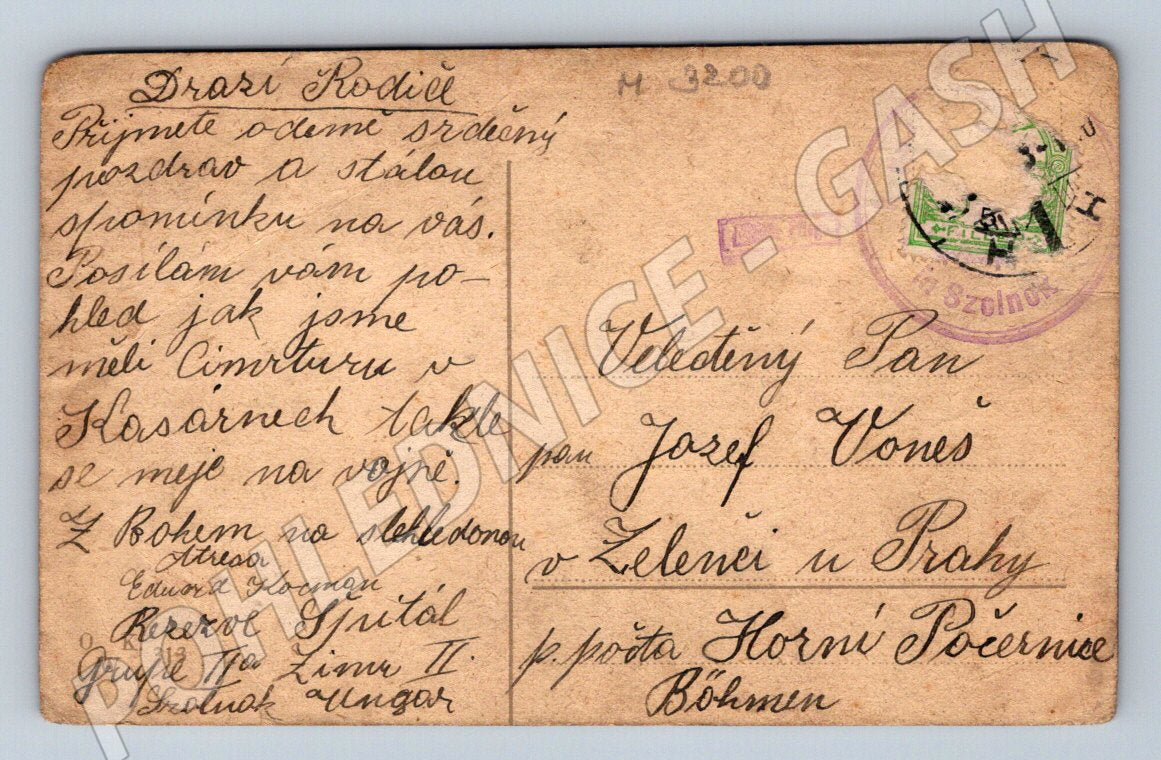 Drazí Rodiče
Přijmete odemě srdečný
pozdrav a stálou
spomínku na vás.
Posílám vám po-
hled jak jsme
měli Cimrturu v
Kasárnech takle
se meje na vojně.
Z Bohem na
Atresa
Eduard Kocman
Rezerve Špitál
Grupe IIa Zimr II.
Szolnok Ungar
M 3200
ig Szolnok
Veleděný Pan
pan Jozef Voneš
v Zelenči u Prahy
p. počta Horní Počernice
Böhmen
POHLEDNICE - GASH